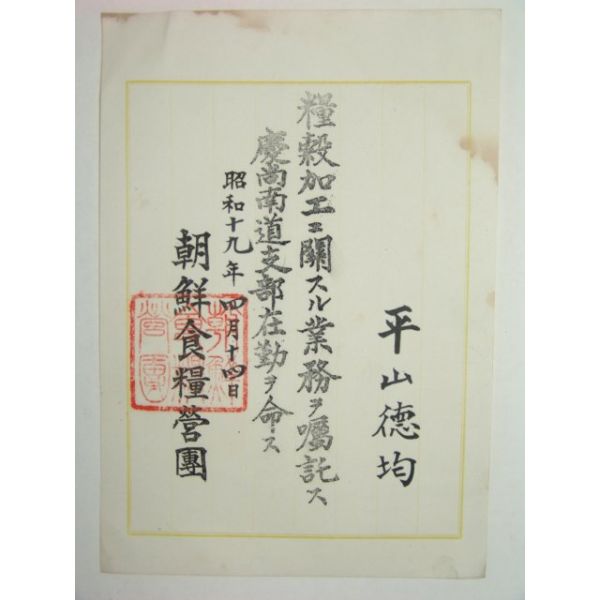 平山德均
糧穀加工ニ關スル業務ヲ囑託ス
慶尙南道支部在勤ヲ命ス
昭和十九年四月十四日
朝鮮食糧營團